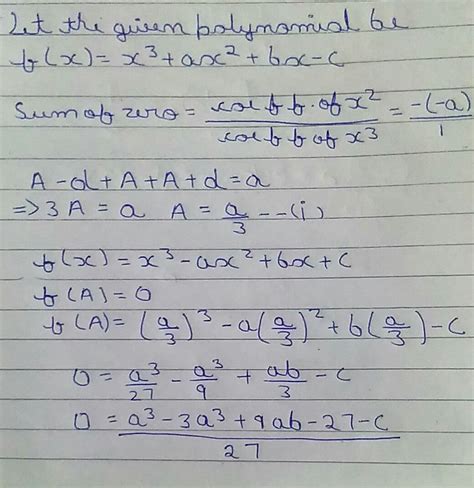 Let the given polynomial be
f(x) = x³ + ax² + bx - c
Sum of zero = coeff. of x² / coeff of x³ = -(-a) / 1
A - d + A + A + d = a
=> 3A = a A = a/3 --(i)
f(x) = x³ - ax² + bx + c
f(A) = 0
f(A) = (a/3)³ - a(a/3)² + b(a/3) - c
0 = a³/27 - a³/9 + ab/3 - c
0 = a³ - 3a³ + 9ab - 27 - c / 27